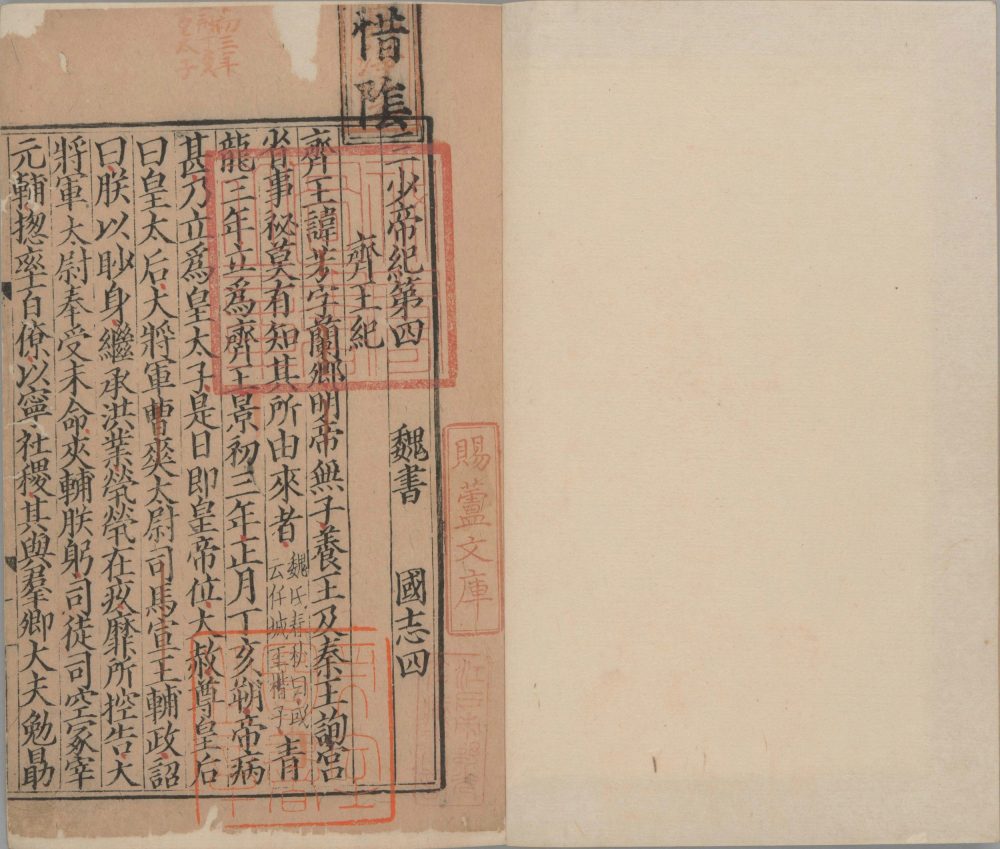 惜陰
三少帝紀第四 魏書 國志四
齊王紀
齊王諱芳字蘭卿明帝無子養王及秦王詢宮
省事祕莫有知其所由來者魏氏春秋曰或云任城王楷子青
龍三年立爲齊王景初三年正月丁亥朔帝病
甚乃立爲皇太子是日即皇帝位大赦尊皇后
曰皇太后大將軍曹爽太尉司馬宣王輔政詔
曰朕以眇身繼承洪業煢煢在疚靡所控告大
將軍太尉奉受末命夾輔朕躬司徒司空冢宰
元輔揔率百僚以寧社稷其與羣卿大夫勉勗
賜蘆文庫